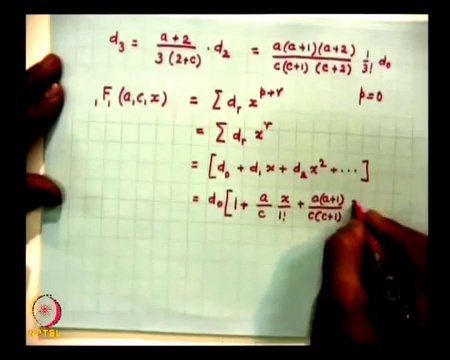 d₃ = (a+2)/(3(2+c)) · d₂ = (a(a+1)(a+2))/(c(c+1)(c+2)) 1/3! d₀
₁F₁ (a,c,x) = ∑ dᵣ x^(p+r) p=0
= ∑ dᵣ x^r
= [d₀ + d₁ x + d₂ x² + ⋯]
= d₀ [1 + a/c x/1! + (a(a+1))/(c(c+1))
NPTEL